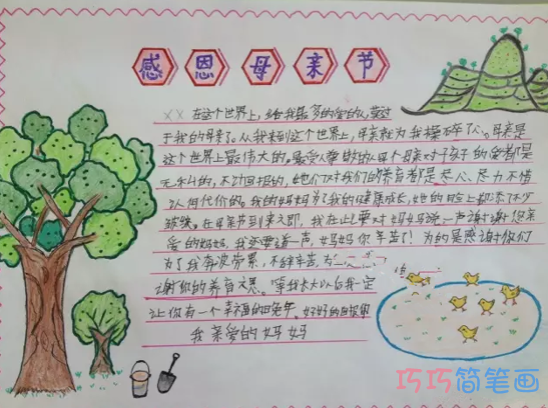 感恩母亲节
XX 在这个世界上,给我最多的爱的人,莫过
于我的母亲了。从我来到这个世界上,母亲就为我操碎了心。母亲是
这个世界上最伟大的。最受人尊敬的人。每个母亲对孩子的爱都是
无私的,不求回报的,她们对我们的养育都是尽心、尽力不惜
任何代价的。我的妈妈为了我的健康成长,她的脸上都添了不少
皱纹。在母亲节到来之即,我在此要对妈妈说一声谢谢您亲
爱的妈妈,我还要道一声,妈妈你辛苦了!为的是感谢你们
为了我奔波劳累,不辞辛苦,为
谢你的养育之恩。等我长大以后我一定
让你有一个幸福的晚年。好好的
我亲爱的妈妈
巧巧简笔画